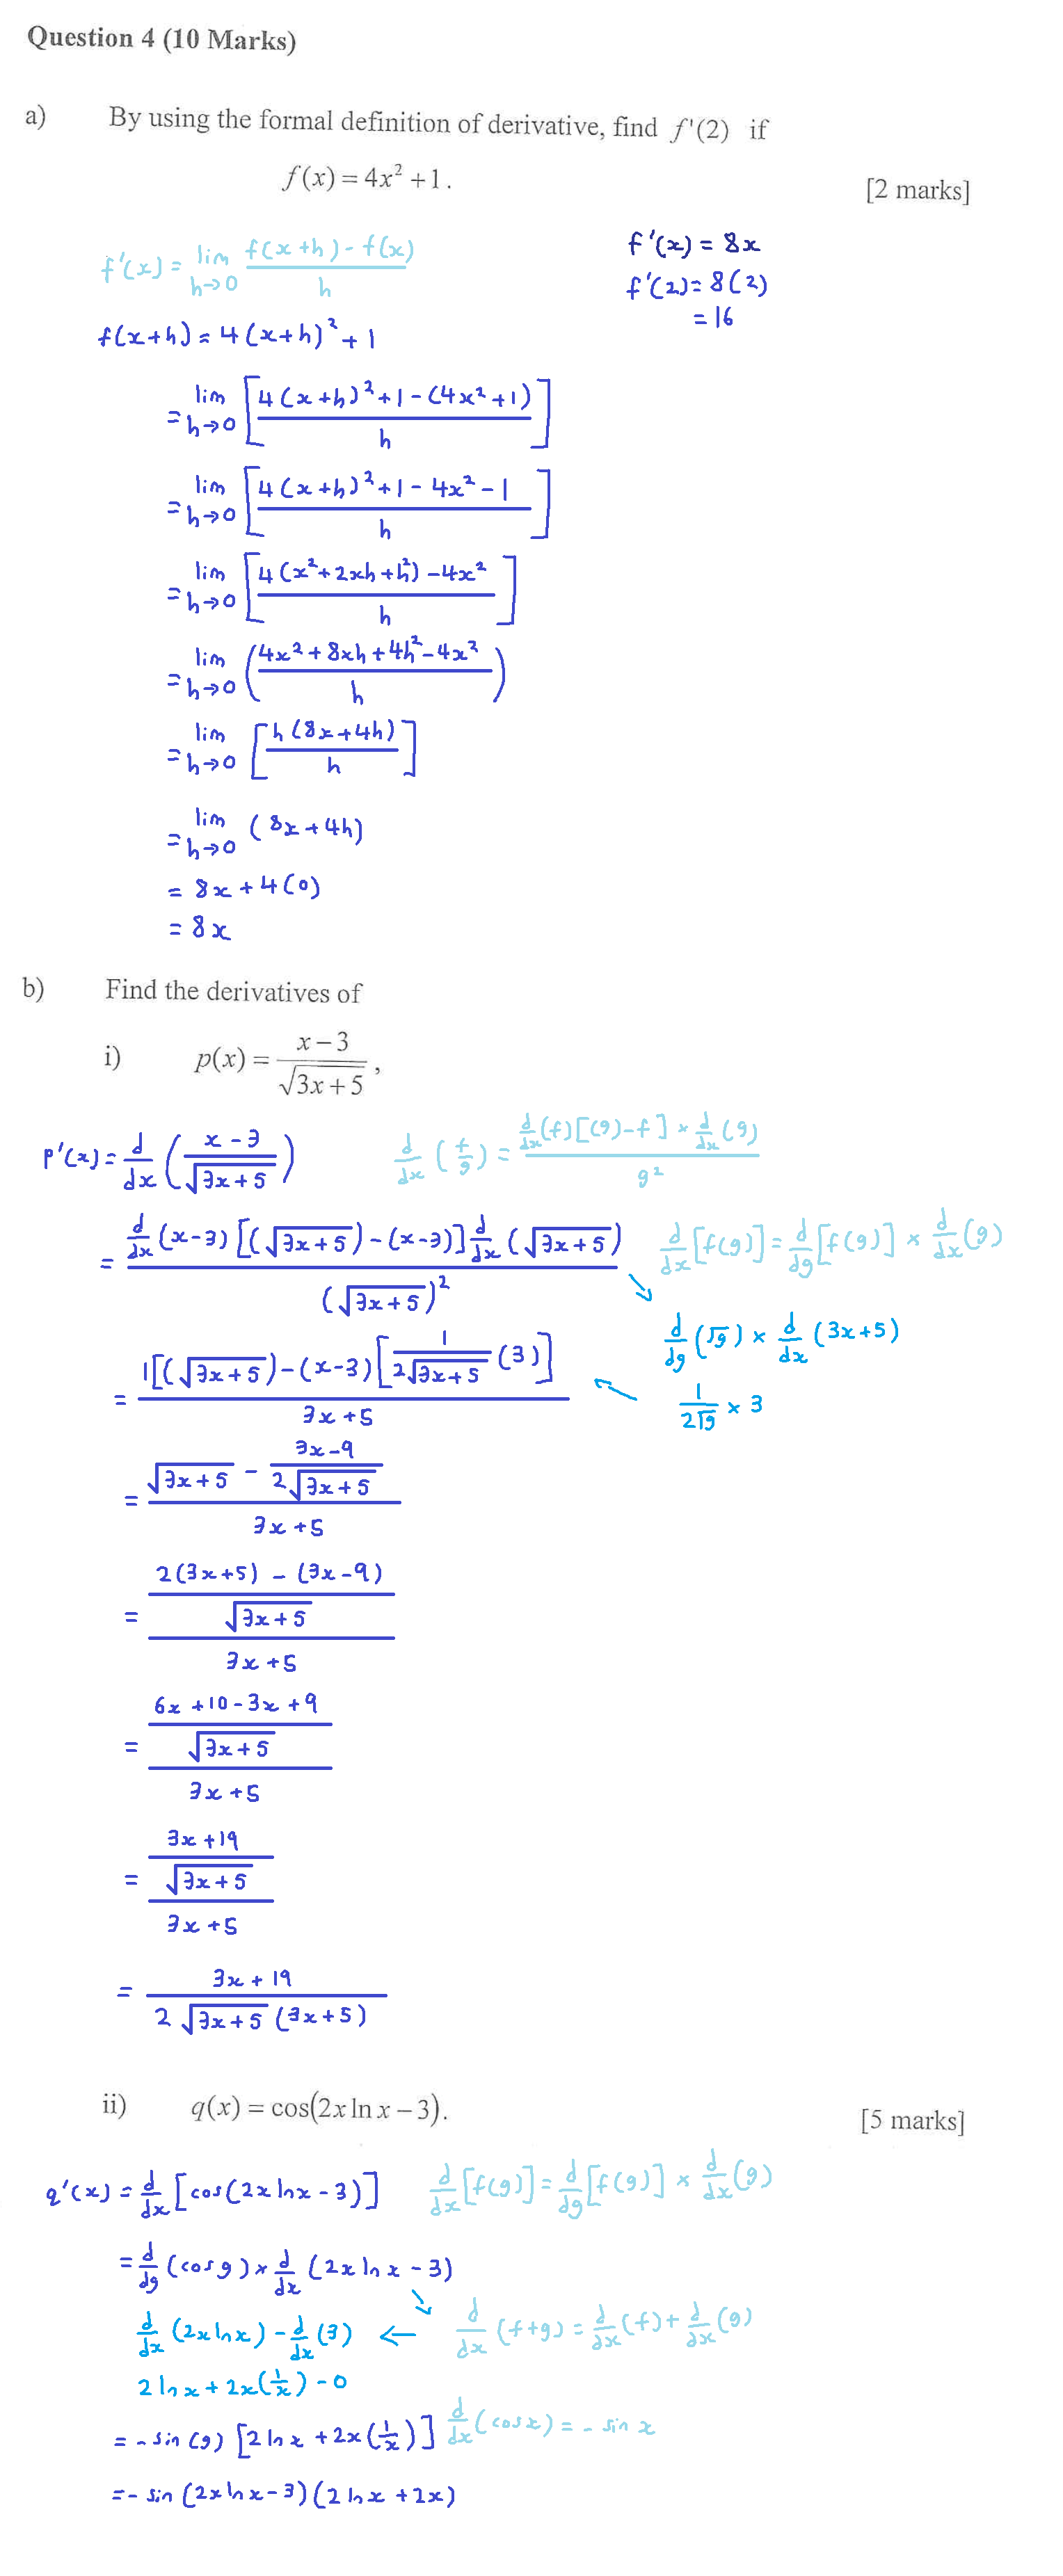 Question 4 (10 Marks)
a) By using the formal definition of derivative, find f'(2) if
f(x) = 4x² + 1.
[2 marks]
f'(x) = lim h→0 (f(x+h) - f(x))/h
f'(x) = 8x
f'(2) = 8(2)
= 16
f(x+h) = 4(x+h)² + 1
= lim h→0 [(4(x+h)² + 1 - (4x² + 1))/h]
= lim h→0 [(4(x+h)² + 1 - 4x² - 1)/h]
= lim h→0 [(4(x² + 2xh + h²) - 4x²)/h]
= lim h→0 ((4x² + 8xh + 4h² - 4x²)/h)
= lim h→0 [h(8x + 4h)/h]
= lim h→0 (8x + 4h)
= 8x + 4(0)
= 8x
b) Find the derivatives of
i) p(x) = (x - 3)/√(3x + 5),
p'(x) = d/dx ((x - 3)/√(3x + 5))
d/dx (f/g) = (d/dx (f) [(g) - f] × d/dx (g))/g²
= (d/dx (x-3) [(√(3x+5)) - (x-3)] d/dx (√(3x+5)))/(√(3x+5))²
d/dx [f(g)] = d/dg [f(g)] × d/dx (g)
↘
d/dg (√g) × d/dx (3x+5)
= (1[(√(3x+5)) - (x-3) [1/(2√(3x+5)) (3)]])/(3x+5)
← 1/(2√g) × 3
= (√(3x+5) - (3x-9)/(2√(3x+5)))/(3x+5)
= ((2(3x+5) - (3x-9))/√(3x+5))/(3x+5)
= ((6x + 10 - 3x + 9)/√(3x+5))/(3x+5)
= ((3x + 19)/√(3x+5))/(3x+5)
= (3x + 19)/(2√(3x+5) (3x+5))
ii) q(x) = cos(2x ln x - 3).
[5 marks]
q'(x) = d/dx [cos(2x ln x - 3)]
d/dx [f(g)] = d/dg [f(g)] × d/dx (g)
= d/dg (cos g) × d/dx (2x ln x - 3)
↘
d/dx (2x ln x) - d/dx (3) ←
d/dx (f+g) = d/dx (f) + d/dx (g)
2 ln x + 2x(1/x) - 0
= - sin (g) [2 ln x + 2x(1/x)]
d/dx (cos x) = - sin x
= - sin (2x ln x - 3) (2 ln x + 2x)